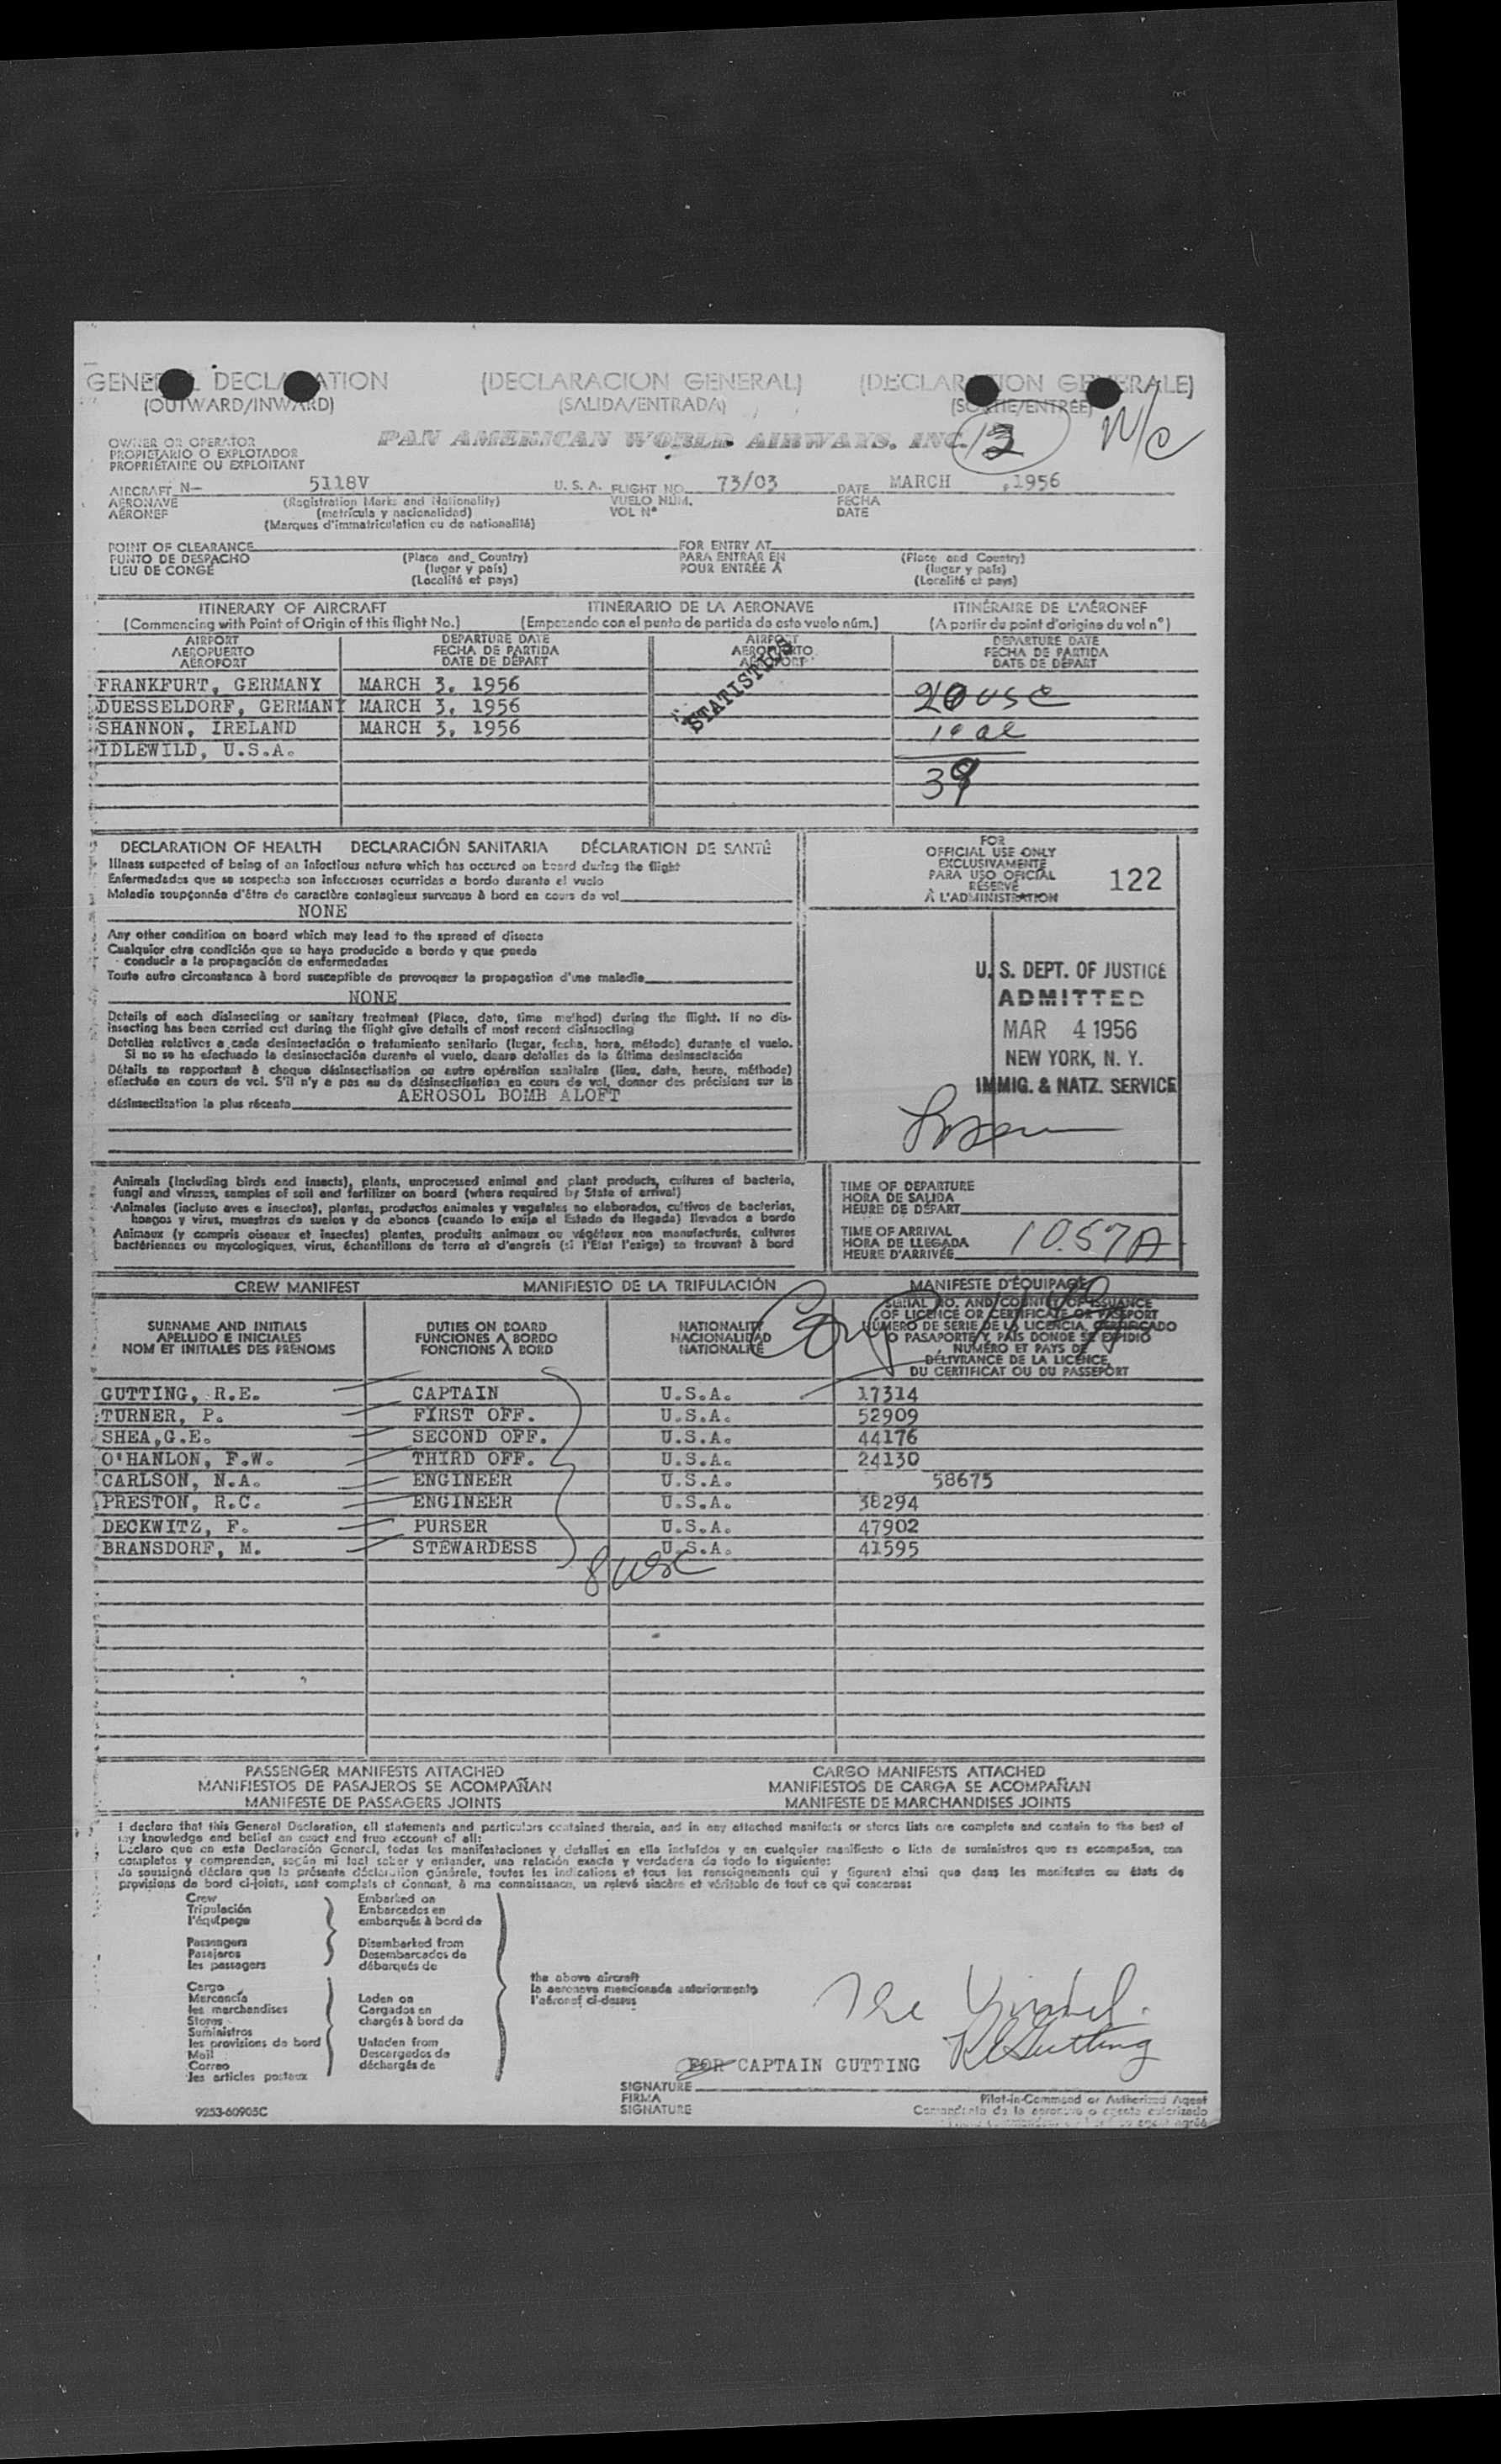 GENERAL DECLARATION (DECLARACION GENERAL) (DECLARATION GENERALE)
(OUTWARD/INWARD) (SALIDA/ENTRADA) (SORTIE/ENTRÉE)
N/C
OWNER OR OPERATOR
PROPIETARIO O EXPLOTADOR
PROPRIÉTAIRE OU EXPLOITANT
PAN AMERICAN WORLD AIRWAYS, INC.
AIRCRAFT N- 5118V U.S.A. FLIGHT NO. 73/03 DATE MARCH , 1956
AERONAVE (Registration Marks and Nationality) VUELO NUM. FECHA
AÉRONEF (matrícula y nacionalidad) VOL Nº DATE
(Marques d'immatriculation ou de nationalité)
POINT OF CLEARANCE FOR ENTRY AT
PUNTO DE DESPACHO (Place and Country) PARA ENTRAR EN (Place and Country)
LIEU DE CONGÉ (lugar y país) POUR ENTRÉE À (lugar y país)
(Localité et pays) (Localité et pays)
ITINERARY OF AIRCRAFT ITINERARIO DE LA AERONAVE ITINÉRAIRE DE L'AÉRONEF
(Commencing with Point of Origin of this flight No.) (Empezando con el punto de partida de este vuelo núm.) (A partir du point d'origine du vol nº)
AIRPORT DEPARTURE DATE AIRPORT DEPARTURE DATE
AEROPUERTO FECHA DE PARTIDA AEROPUERTO FECHA DE PARTIDA
AÉROPORT DATE DE DÉPART AÉROPORT DATE DE DÉPART
STATISTICS
FRANKFURT, GERMANY MARCH 3, 1956
DUESSELDORF, GERMANY MARCH 3, 1956 20 USC
SHANNON, IRELAND MARCH 3, 1956
IDLEWILD, U.S.A.
39
DECLARATION OF HEALTH DECLARACIÓN SANITARIA DÉCLARATION DE SANTÉ
Illness suspected of being of an infectious nature which has occured on board during the flight
Enfermedades que se sospecha son infecciosas ocurridas a bordo durante el vuelo
Maladie soupçonnée d'être de caractère contagieux survenue à bord en cours de vol
NONE
Any other condition on board which may lead to the spread of disease
Cualquier otra condición que se haya producido a bordo y que pueda
conducir a la propagación de enfermedades
Toute autre circonstance à bord susceptible de provoquer la propagation d'une maladie
NONE
Details of each disinsecting or sanitary treatment (Place, date, time method) during the flight. If no dis-
insecting has been carried out during the flight give details of most recent disinsecting
Detalles relativos a cada desinsectación o tratamiento sanitario (lugar, fecha, hora, método) durante el vuelo.
Si no se ha efectuado la desinsectación durante el vuelo, danse detalles de la última desinsectación
Détails se rapportant à chaque désinsectisation ou autre opération sanitaire (lieu, date, heure, méthode)
effectuée en cours de vol. S'il n'y a pas eu de désinsectisation en cours de vol, donner des précisions sur la
désinsectisation la plus récente AEROSOL BOMB ALOFT
FOR
OFFICIAL USE ONLY
EXCLUSIVAMENTE
PARA USO OFICIAL
RÉSERVÉ
À L'ADMINISTRATION
122
U. S. DEPT. OF JUSTICE
ADMITTED
MAR 4 1956
NEW YORK, N. Y.
IMMIG. & NATZ. SERVICE
Animals (including birds and insects), plants, unprocessed animal and plant products, cultures of bacteria,
fungi and viruses, samples of soil and fertilizer on board (where required by State of arrival)
Animales (incluso aves e insectos), plantas, productos animales y vegetales no elaborados, cultivos de bacterias,
hongos y virus, muestras de suelos y de abonos (cuando lo exija el Estado de llegada) llevados a bordo
Animaux (y compris oiseaux et insectes) plantes, produits animaux ou végétaux non manufacturés, cultures
bactériennes ou mycologiques, virus, échantillons de terre et d'engrais (si l'Etat l'exige) se trouvant à bord
TIME OF DEPARTURE
HORA DE SALIDA
HEURE DE DÉPART
TIME OF ARRIVAL
HORA DE LLEGADA
HEURE D'ARRIVÉE
10.57A
CREW MANIFEST MANIFIESTO DE LA TRIPULACIÓN MANIFESTE D'ÉQUIPAGE
SURNAME AND INITIALS
APELLIDO E INICIALES
NOM ET INITIALES DES PRÉNOMS
DUTIES ON BOARD
FUNCIONES A BORDO
FONCTIONS À BORD
NATIONALITY
NACIONALIDAD
NATIONALITÉ
SERIAL NO. AND COUNTRY OF ISSUANCE
OF LICENCE OR CERTIFICATE OR PASSPORT
NÚMERO DE SERIE DE LA LICENCIA, CERTIFICADO
O PASAPORTE Y PAÍS DONDE SE EXPIDIÓ
NUMÉRO ET PAYS DE
DÉLIVRANCE DE LA LICENCE,
DU CERTIFICAT OU DU PASSEPORT
GUTTING, R.E. CAPTAIN U.S.A. 17314
TURNER, P. FIRST OFF. U.S.A. 52909
SHEA,G.E. SECOND OFF. U.S.A. 44176
O'HANLON, F.W. THIRD OFF. U.S.A. 24130
CARLSON, N.A. ENGINEER U.S.A. 58675
PRESTON, R.C. ENGINEER U.S.A. 38294
DECKWITZ, F. PURSER U.S.A. 47902
BRANSDORF, M. STEWARDESS U.S.A. 41595
8 USC
PASSENGER MANIFESTS ATTACHED CARGO MANIFESTS ATTACHED
MANIFIESTOS DE PASAJEROS SE ACOMPAÑAN MANIFIESTOS DE CARGA SE ACOMPAÑAN
MANIFESTE DE PASSAGERS JOINTS MANIFESTE DE MARCHANDISES JOINTS
I declare that this General Declaration, all statements and particulars contained therein, and in any attached manifests or stores lists are complete and contain to the best of
my knowledge and belief an exact and true account of all:
Declaro que en esta Declaración General, todas las manifestaciones y detalles en ella incluídos y en cualquier manifiesto o lista de suministros que se acompañan, son
completos y comprenden, según mi leal saber y entender, una relación exacta y verdadera de todo lo siguiente:
Je soussigné déclare que la présente déclaration générale, toutes les indications et tous les renseignements qui y figurent ainsi que dans les manifestes ou états de
provisions de bord ci-joints, sont complets et donnent, à ma connaissance, un relevé sincère et véritable de tout ce qui concerne:
Crew Embarked on
Tripulación Embarcados en
l'équipage embarqués à bord de
Passengers Disembarked from
Pasajeros Desembarcados de
les passagers débarqués de
Cargo
Mercancía Laden on
les marchandises Cargados en
Stores chargés à bord de
Suministros
les provisions de bord Unladen from
Mail Descargados de
Correo déchargés de
les articles postaux
the above aircraft
la aeronave mencionada anteriormente
l'aéronef ci-dessus
R E Gutting
FOR CAPTAIN GUTTING
SIGNATURE
FIRMA
SIGNATURE
Pilot-in-Command or Authorized Agent
Comandante de la aeronave o agente autorizado
9253-60905C